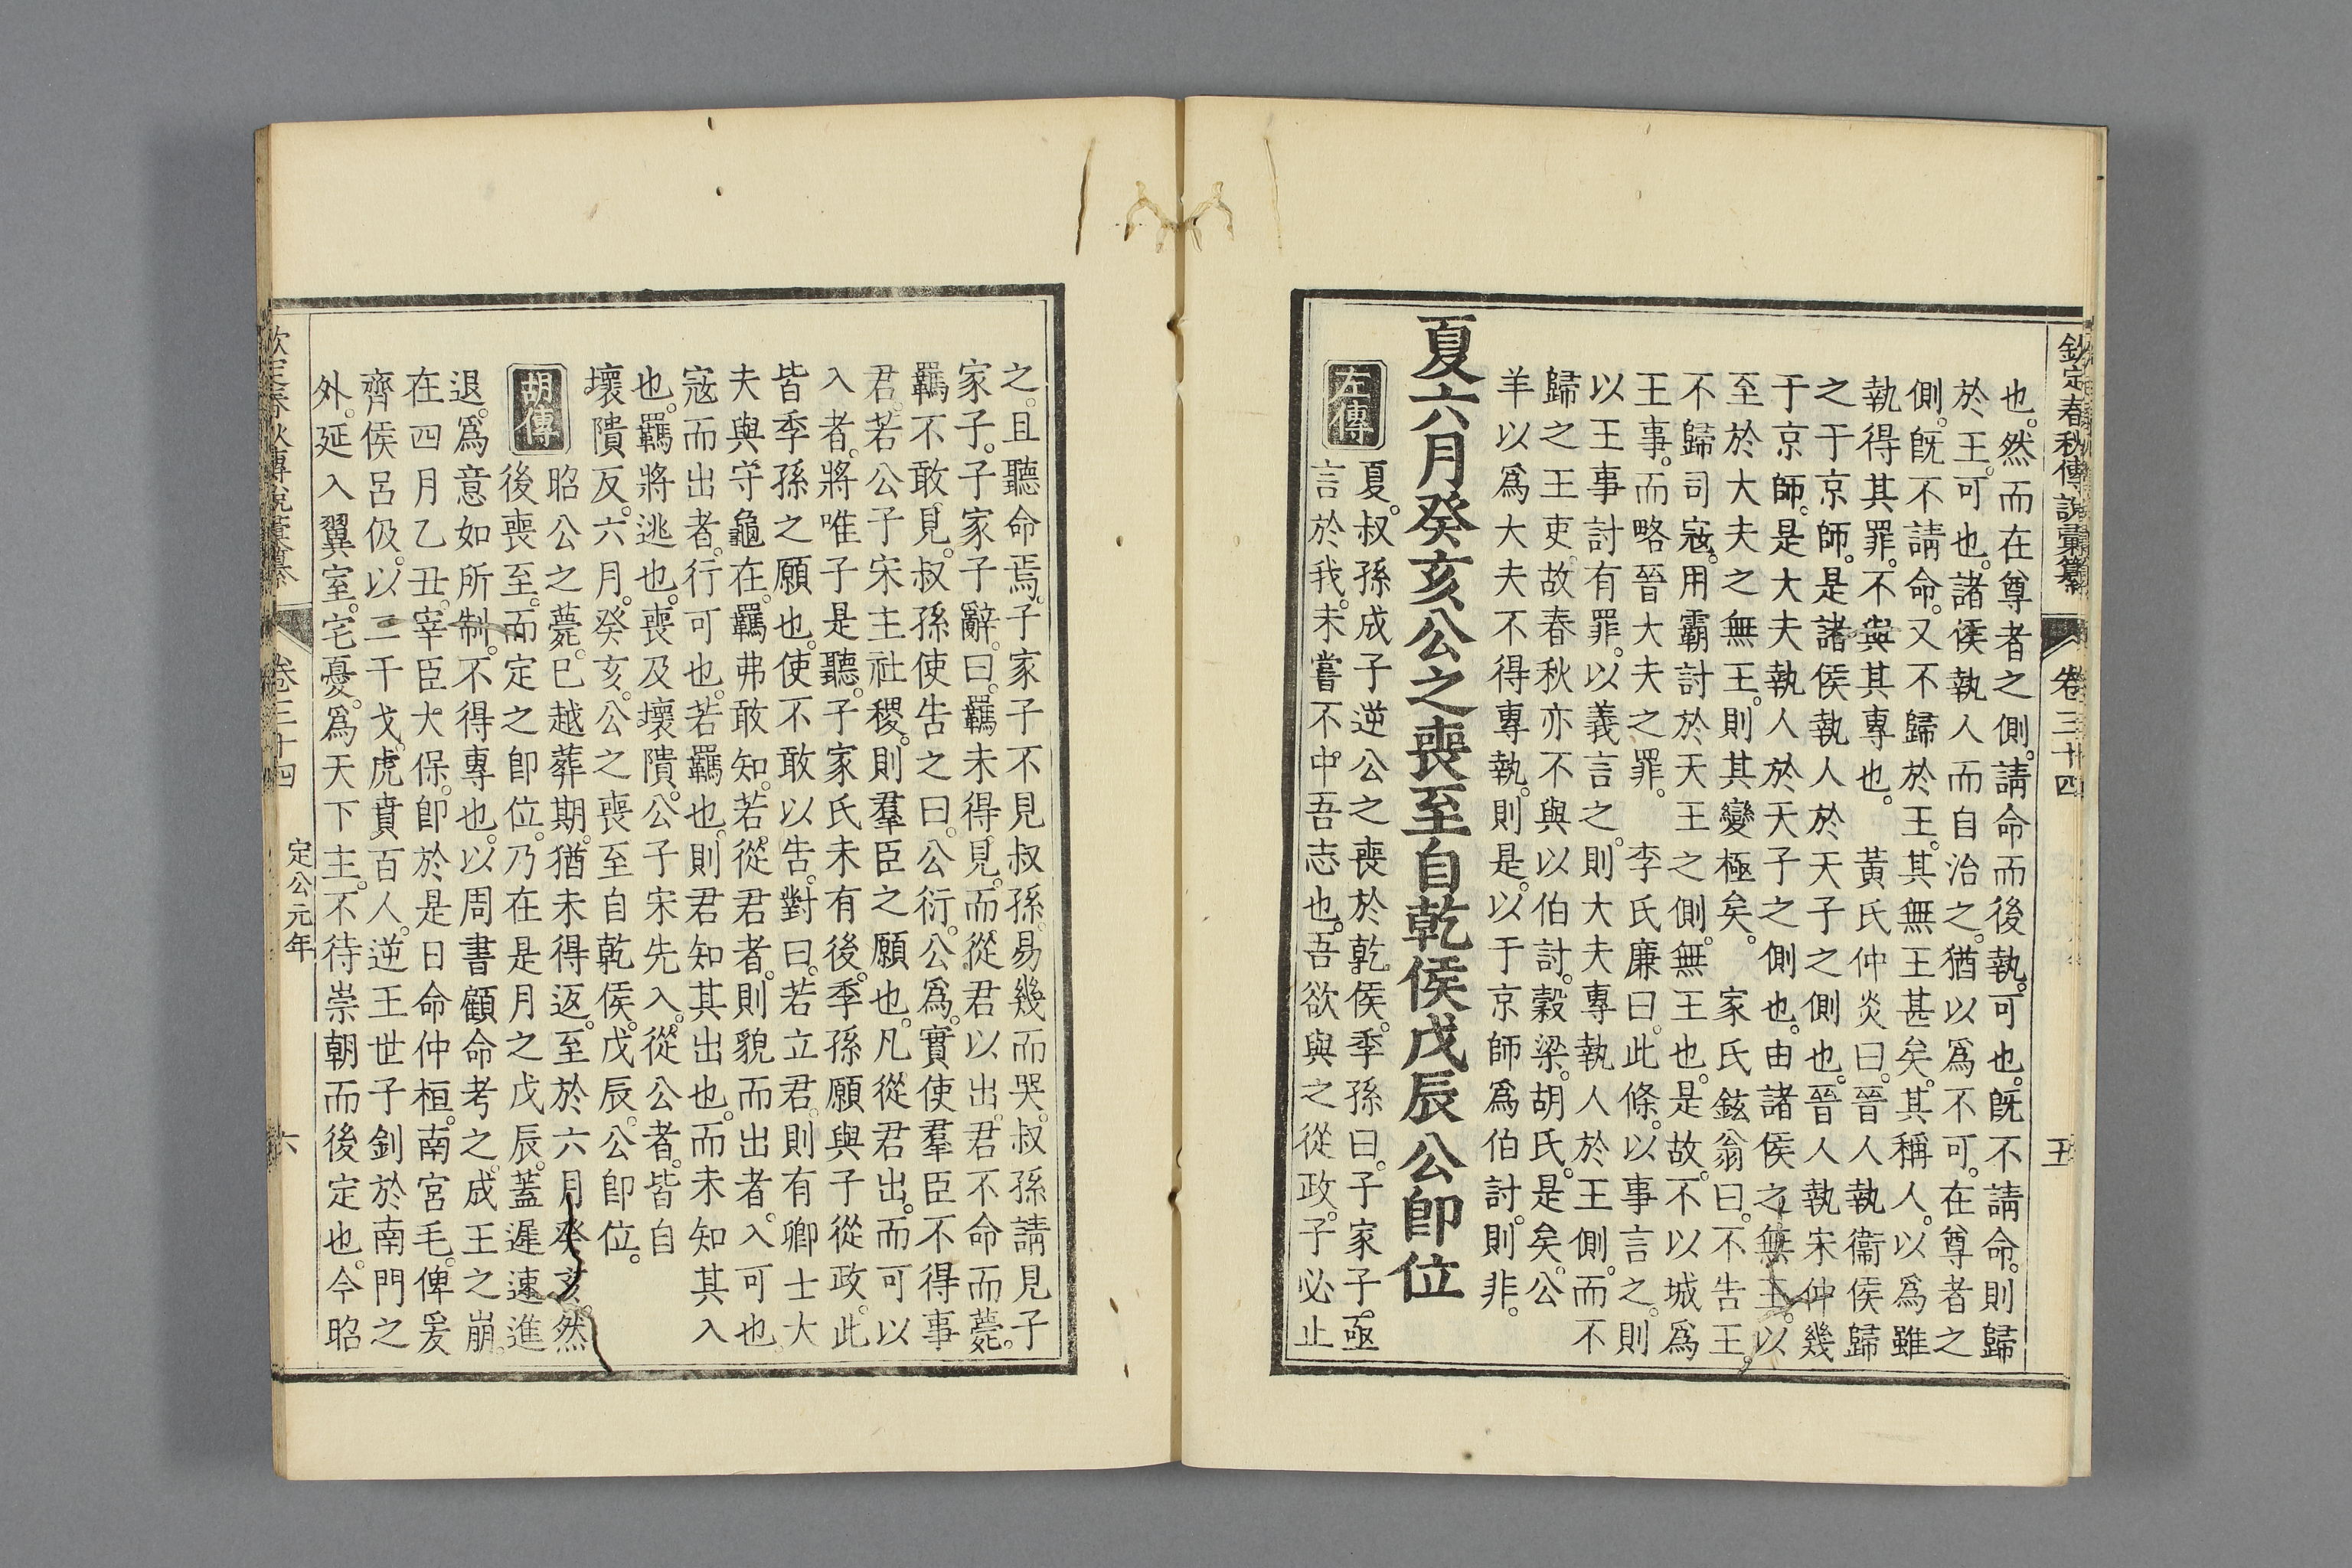 欽定春秋傳說彙纂 卷三十四 五
也。然而在尊者之側。請命而後執。可也。旣不請命。則歸
於王。可也。諸侯執人而自治之。猶以爲不可。在尊者之
側。旣不請命。又不歸於王。其無王甚矣。其稱人。以爲雖
執得其罪。不與其專也。　黃氏仲炎曰。晉人執衞侯歸
之于京師。是諸侯執人於天子之側也。晉人執宋仲幾
于京師。是大夫執人於天子之側也。由諸侯之無王。以
至於大夫之無王。則其變極矣。　家氏鉉翁曰。不告王。
不歸司寇。用霸討於天王之側。無王也。是故不以城爲
王事。而略晉大夫之罪。　李氏廉曰。此條。以事言之。則
以王事討有罪。以義言之。則大夫專執人於王側。而不
歸之王吏。故春秋亦不與以伯討。穀梁。胡氏。是矣。公
羊以爲大夫不得專執。則是。以于京師爲伯討。則非。
夏六月癸亥公之喪至自乾侯戊辰公卽位
左傳 夏。叔孫成子逆公之喪於乾侯。季孫曰。子家子。亟
言於我。未嘗不中吾志也。吾欲與之從政。子必止
之。且聽命焉。子家子不見叔孫。易幾而哭。叔孫請見子
家子。子家子辭。曰。羈未得見。而從君以出。君不命而薨。
羈不敢見。叔孫使告之曰。公衍。公爲。實使羣臣不得事
君。若公子宋主社稷。則羣臣之願也。凡從君出。而可以
入者。將唯子是聽。子家氏未有後。季孫願與子從政。此
皆季孫之願也。使不敢以告。對曰。若立君。則有卿士大
夫與守龜在。羈弗敢知。若從君者。則貌而出者。入可也
寇而出者。行可也。若羈也。則君知其出也。而未知其入
也。羈將逃也。喪及壞隤。公子宋先入。從公者。皆自
壞隤反。六月。癸亥。公之喪至自乾侯。戊辰。公卽位。
胡傳 昭公之薨。已越葬期。猶未得返。至於六月癸亥。然
後喪至。而定之卽位。乃在是月之戊辰。蓋遲速進
退。爲意如所制。不得專也。以周書顧命考之。成王之崩。
在四月乙丑。宰臣太保。卽於是日命仲桓。南宮毛。俾爰
齊侯呂伋。以二干戈。虎賁百人。逆王世子釗於南門之
外。延入翼室。宅憂。爲天下主。不待崇朝而後定也。今昭
欽定春秋傳說彙纂 卷三十四 定公元年 六